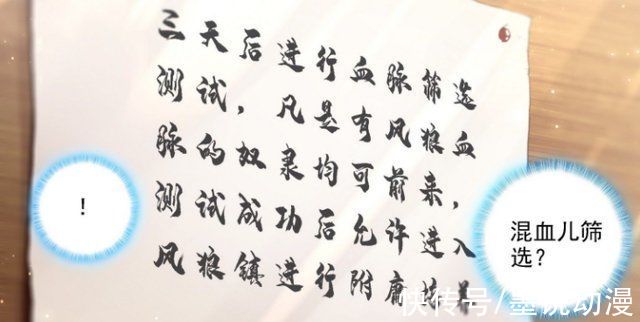 三天后进行血脉筛选
测试，凡是有风狼血
脉的奴隶均可前来，
测试成功后允许进入
风狼镇进行附庸
！
混血儿筛
选？
快传号/墨说动漫